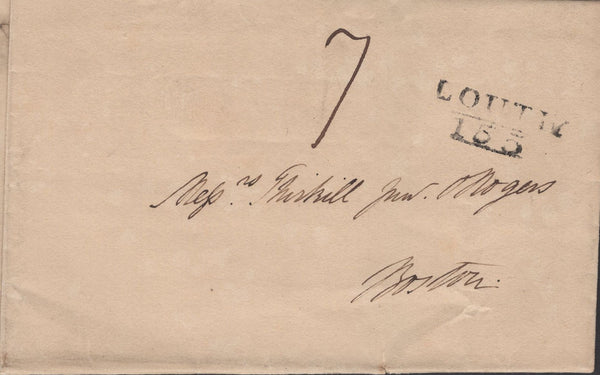 7
LOUTH
155
Mess.rs Thirkill Jun.r & Rogers
Boston.